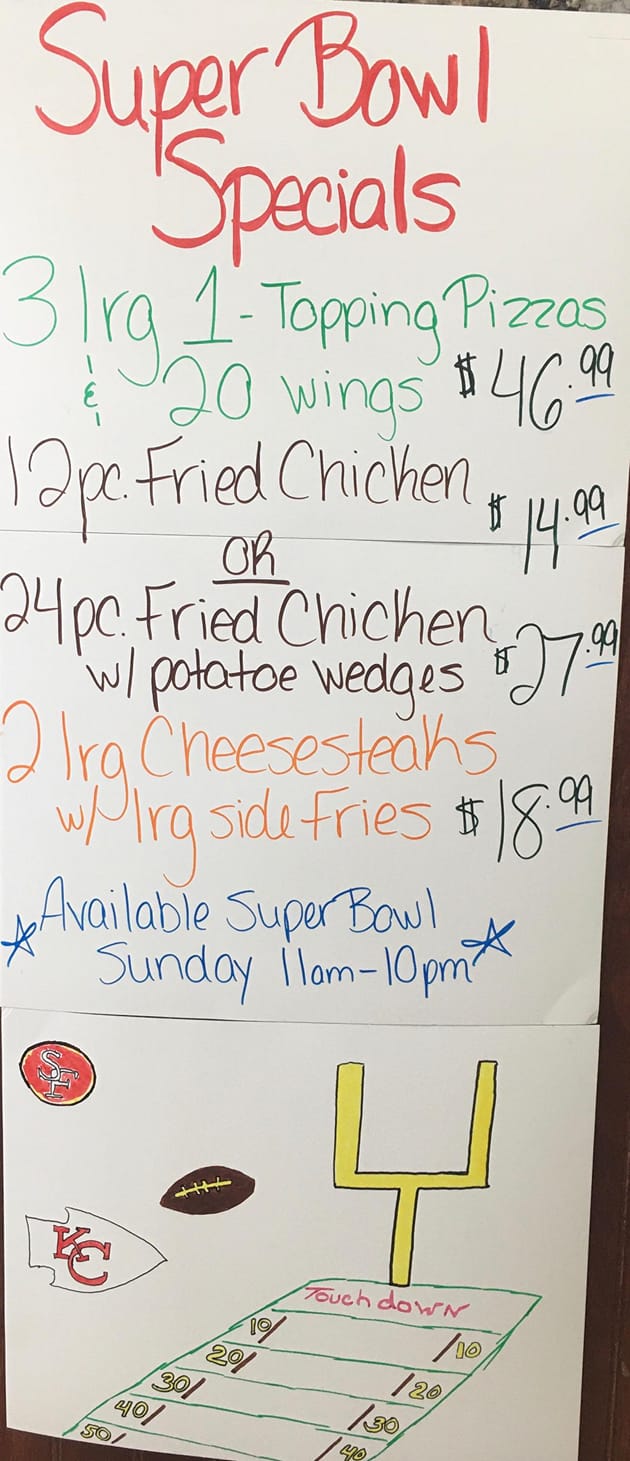 Super Bowl
Specials
3 lrg 1-Topping Pizzas
& 20 wings $46.99
12pc. Fried Chicken $14.99
OR
24pc. Fried Chicken
w/ potatoe wedges $27.99
2 lrg Cheesesteaks
w/ lrg side Fries $18.99
Available Super Bowl
Sunday 11am-10pm
SF
KC
Touchdown
10 10
20 20
30 30
40 40
50